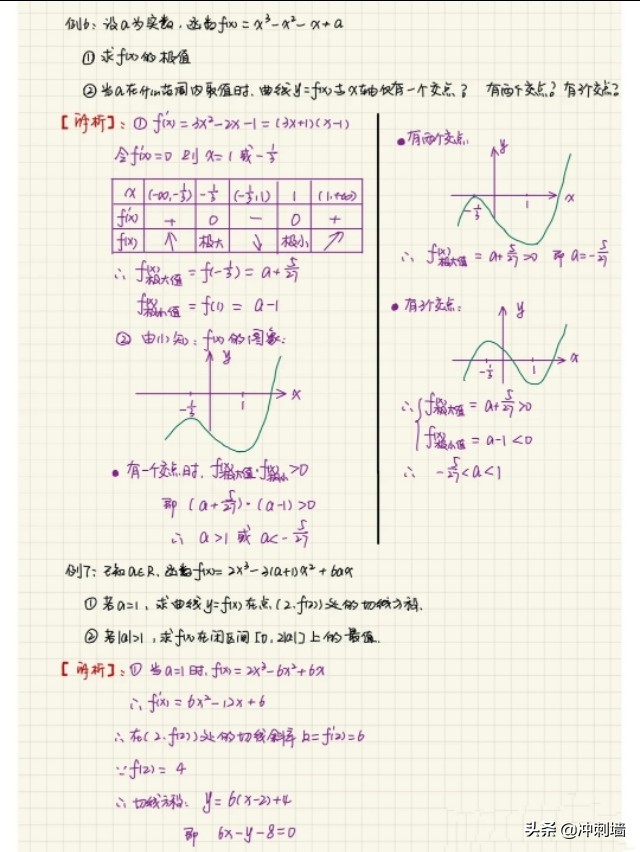 例6: 设a为实数, 函数f(x)=x³-x²-x+a
① 求f(x)的极值
② 当a在什么范围内取值时, 曲线y=f(x)与x轴仅有一个交点? 有两个交点? 有3个交点?
【解析】: ① f'(x)=3x²-2x-1=(3x+1)(x-1)
令f'(x)=0 则 x=1 或 -1/3
x (-∞,-1/3) -1/3 (-1/3,1) 1 (1,+∞)
f'(x) + 0 - 0 +
f(x) ↑ 极大 ↘ 极小 ↗
∴ f(x)极大值 = f(-1/3) = a+5/27
f(x)极小值 = f(1) = a-1
② 由(1)知: f(x)的图象:
y
x
-1/3 1
• 有一个交点时, f(x)极大值·f(x)极小>0
即 (a+5/27)·(a-1)>0
∴ a>1 或 a<-5/27
• 有两个交点:
y
x
-1/3 1
∴ f(x)极大值 = a+5/27>0 即 a=-5/27
• 有3个交点:
y
x
-1/3 1
∴ f(x)极大值 = a+5/27>0
f(x)极小值 = a-1<0
∴ -5/27<a<1
例7: 已知a∈R, 函数f(x)=2x³-3(a+1)x²+6ax
① 若a=1, 求曲线y=f(x)在点(2,f(2))处的切线方程.
② 若|a|>1, 求f(x)在闭区间[0,2|a|]上的最值.
【解析】: ① 当a=1时, f(x)=2x³-6x²+6x
∴ f'(x)=6x²-12x+6
∴ 在(2,f(2))处的切线斜率k=f'(2)=6
∵ f(2)=4
∴ 切线方程: y=6(x-2)+4
即 6x-y-8=0
头条 @冲刺墙